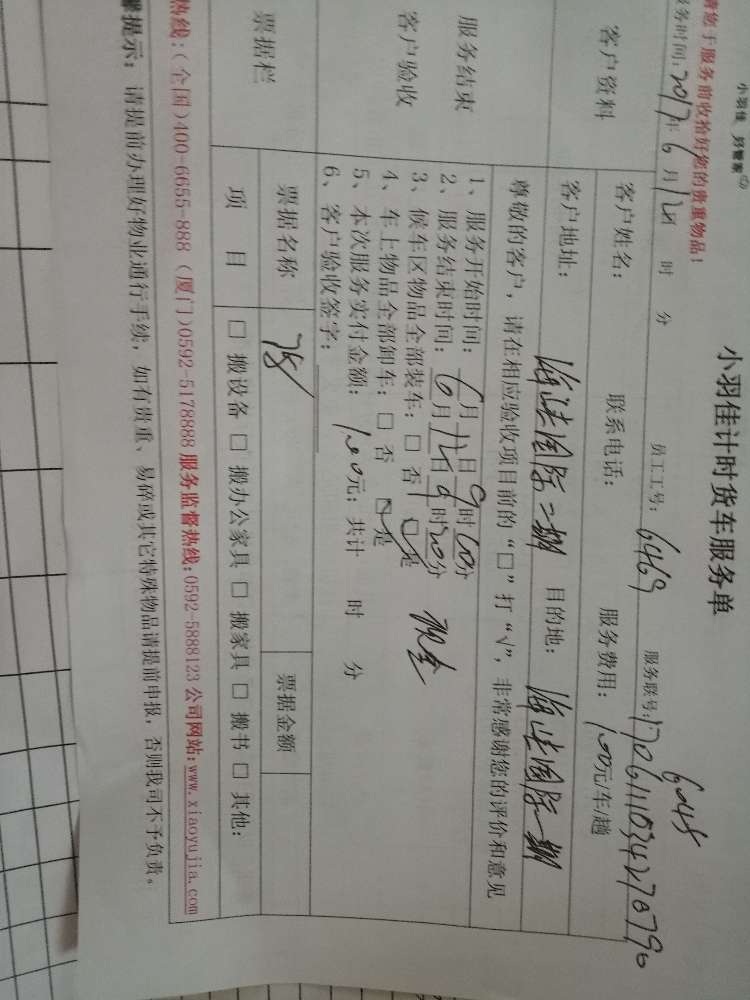 小羽佳 好管家
小羽佳计时货车服务单
请您于服务前收拾好您的贵重物品!
服务时间:2017年6月12日 时 分 员工工号:6469 服务联号:
6045
客户资料
客户姓名: 联系电话: 服务费用:100元/车/趟
客户地址: 海沧国际二期 目的地: 海沧国际一期
服务结束
客户验收
尊敬的客户,请在相应验收项目前的“□”打“√”,非常感谢您的评价和意见
1、服务开始时间:6月12日9时00分
2、服务结束时间:6月12日9时20分
3、候车区物品全部装车:□否 □是
4、车上物品全部卸车:□否 □是
现金
5、本次服务实付金额:100元;共计 时 分
6、客户验收签字:
票据栏
票据名称 票据金额
项 目 □搬设备 □搬办公家具 □搬家具 □搬书 □其他:
热线:(全国)400-6655-888 (厦门)0592-5178888 服务监督热线:0592-5888123 公司网站:www.xiaoyujia.com
馨提示: 请提前办理好物业通行手续,如有贵重、易碎或其它特殊物品请提前申报,否则我司不予负责。